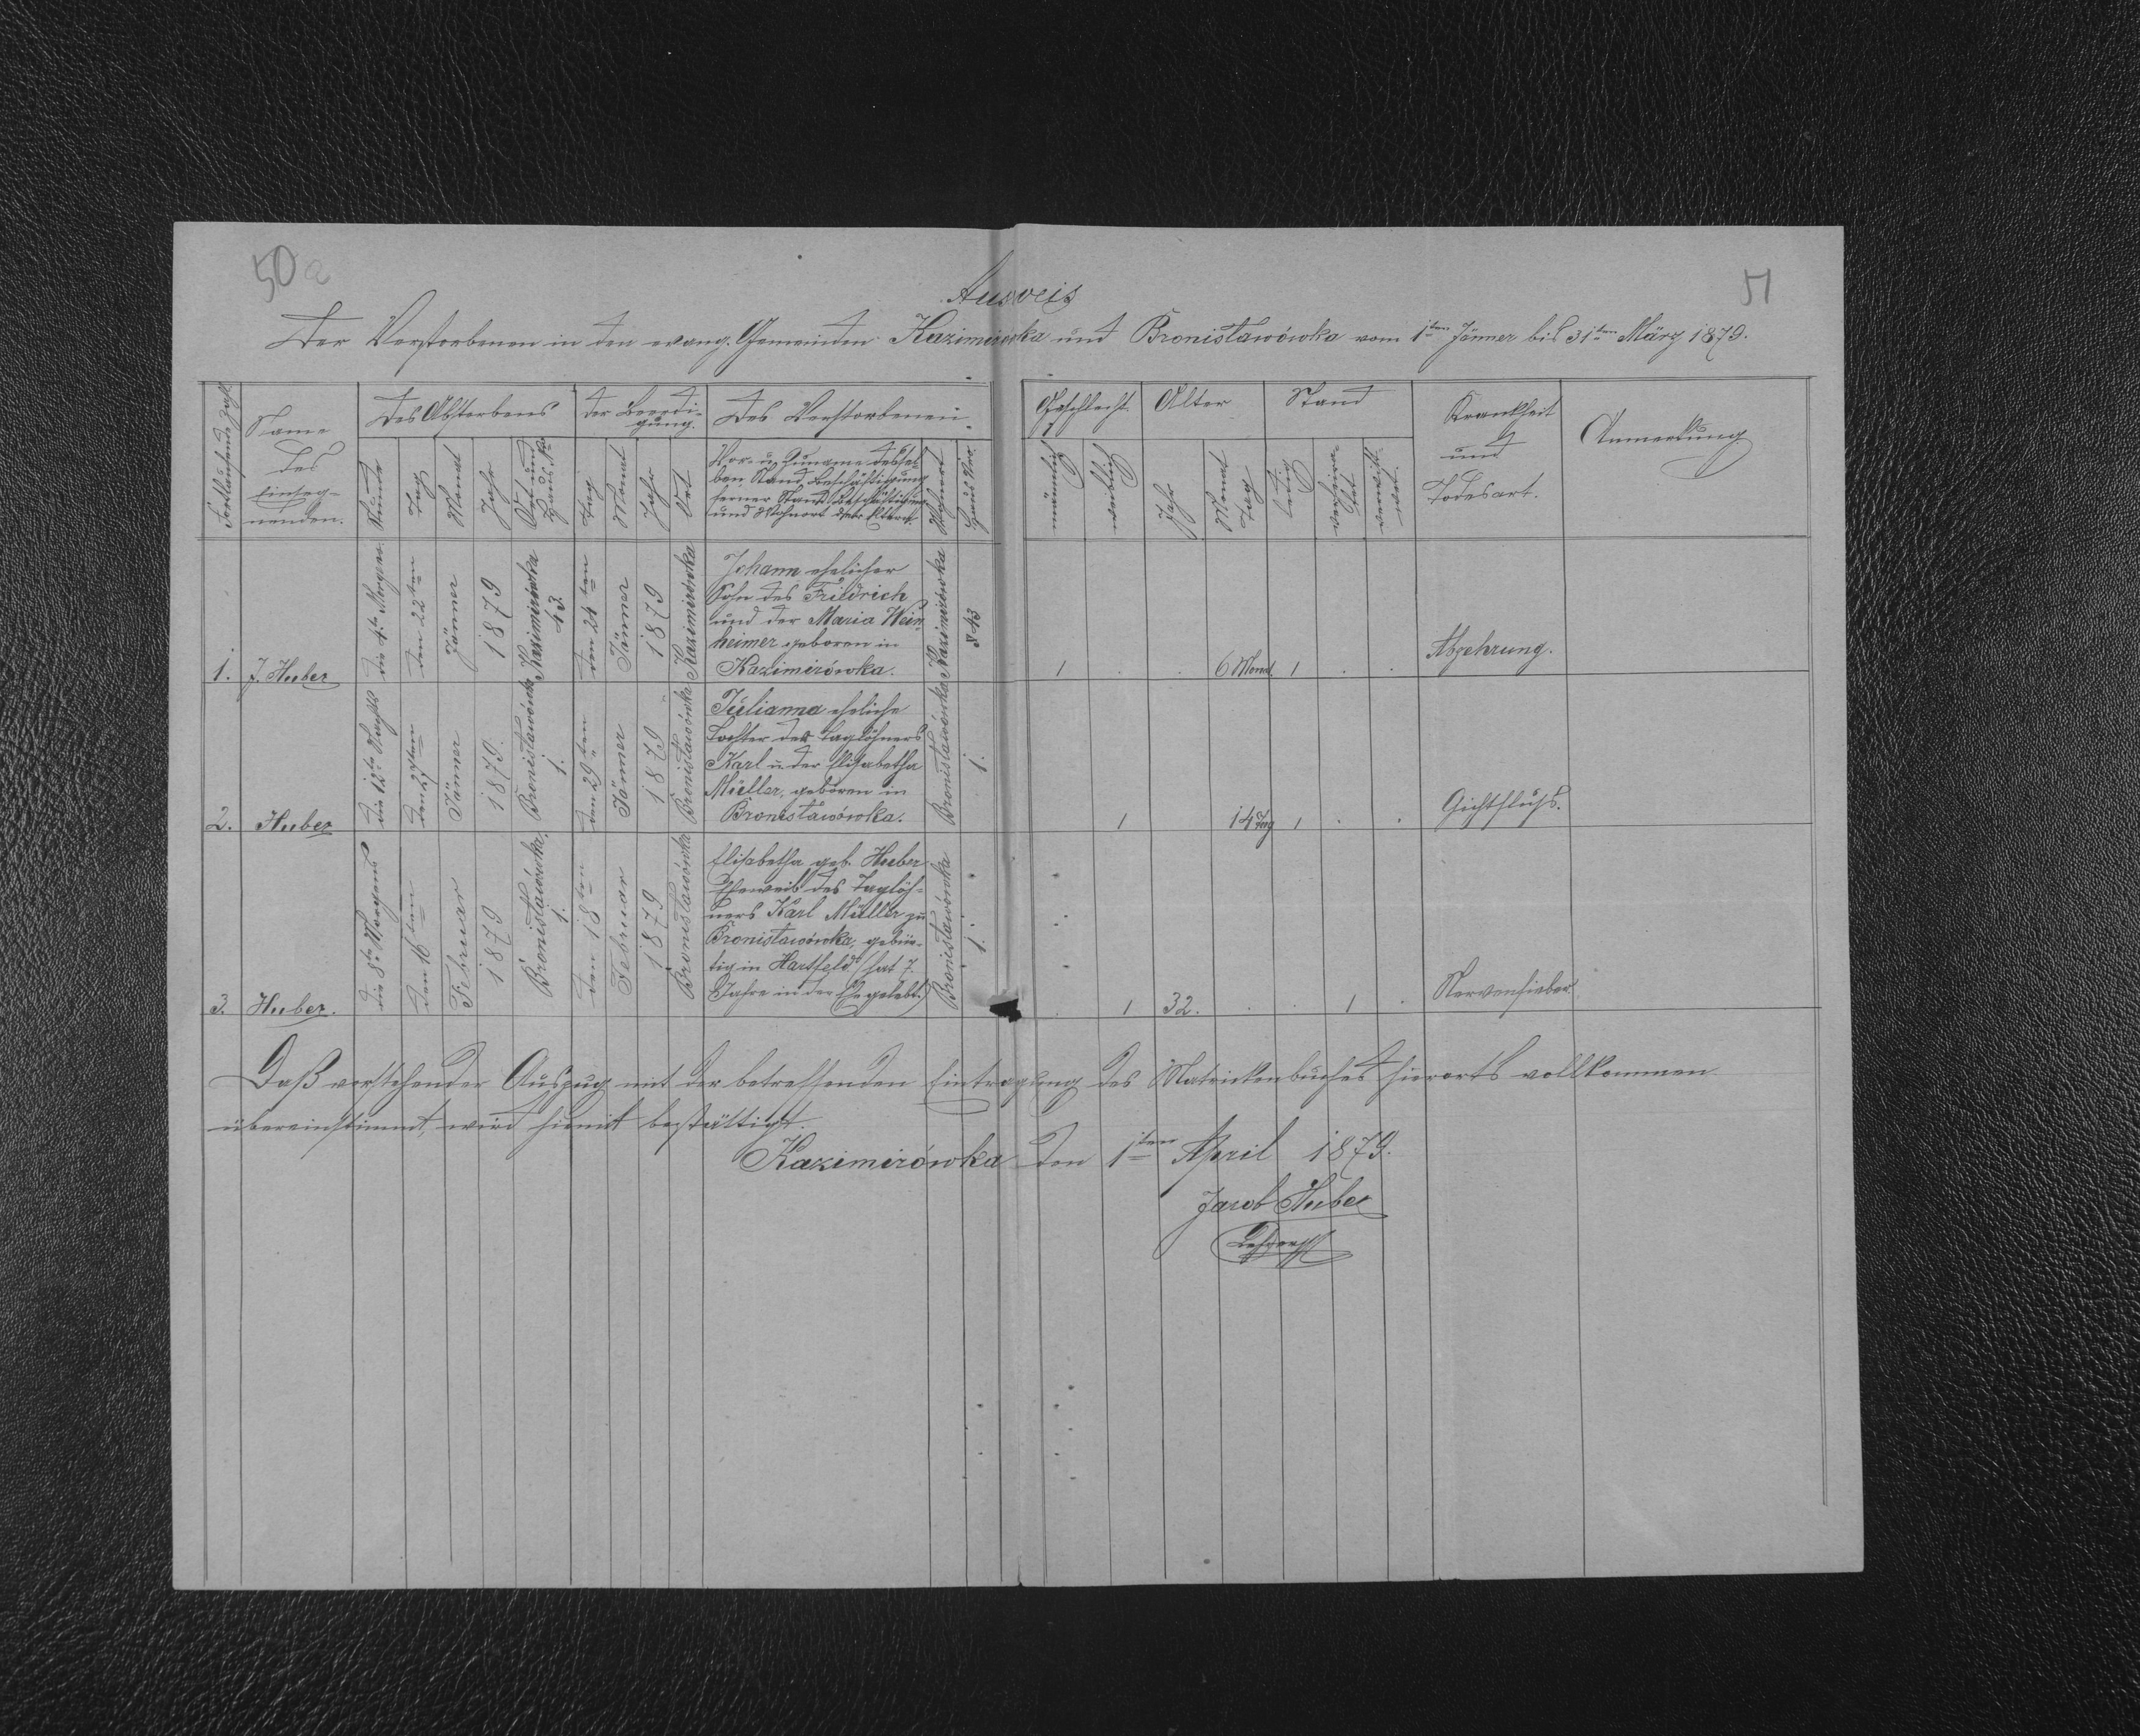 50a
51
Ausweis
Der Verstorbenen in den evang. Gemeinden Kazimirówka und Bronisławówka vom 1ten Jänner bis 31ten März 1879.
Fortlaufende Zahl
Name des Einseg-nenden.
Des Absterbens
Stunde
Tag
Monat
Jahr
Ort und Haus No
der Beerdi-gung.
Tag
Monat
Jahr
Ort
Des Verstorbenen
Vor- u. Zuname dessel-
ben, Stand, Beschäftigung
ferner Stand, Beschäftigung
und Wohnort der Eltern
Wohnort
Haus Nro.
Geschlecht.
männlich
weiblich
Alter
Jahr
Monat
Tag
Stand
ledig
verheira-thet
verwitt-wet.
Krankheit
und
Todesart.
Anmerkung
1.
J. Huber
die 4te Morgens
den 22ten
Jänner
1879
Kazimirówka
43.
den 24ten
Jänner
1879
Kazimirówka
Johann ehelicher
Sohn des Friedrich
und der Maria Wein-
heimer geboren in
Kazimirówka.
Kazimirówka
43
1
6 Monat
1
Abzehrung.
2.
Huber
die 12te Nachts
den 27ten
Jänner
1879.
Bronisławówka
1.
den 29ten
Jänner
1879
Bronisławówka
Julianna eheliche
Tochter des Taglöhners
Karl u. der Elisabetha
Müller, geboren in
Bronisławówka.
Bronisławówka
1.
1
14 Tag
1
Gichtfluß.
3.
Huber.
die 8te Morgens
den 16ten
Februar
1879
Bronisławówka
1.
den 18ten
Februar
1879
Bronisławówka
Elisabetha geb. Huber
Eheweib des Taglöh-
ners Karl Müller zu
Bronisławówka, gebür-
tig in Hartfeld (hat 7.
Jahre in der Ehe gelebt.)
Bronisławówka
1.
1
32.
1
Nervenfieber.
Daß vorstehender Auszug mit der betreffenden Eintragung des Matrickenbuches hierorts vollkommen
übereinstimmt, wird hiemit bestättigt.
Kazimirówka den 1ten April 1879.
Jacob Huber